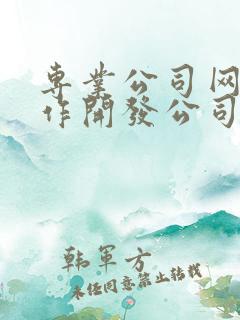 専業公司网
作開發公司
韩軍方
未经同意禁止转载